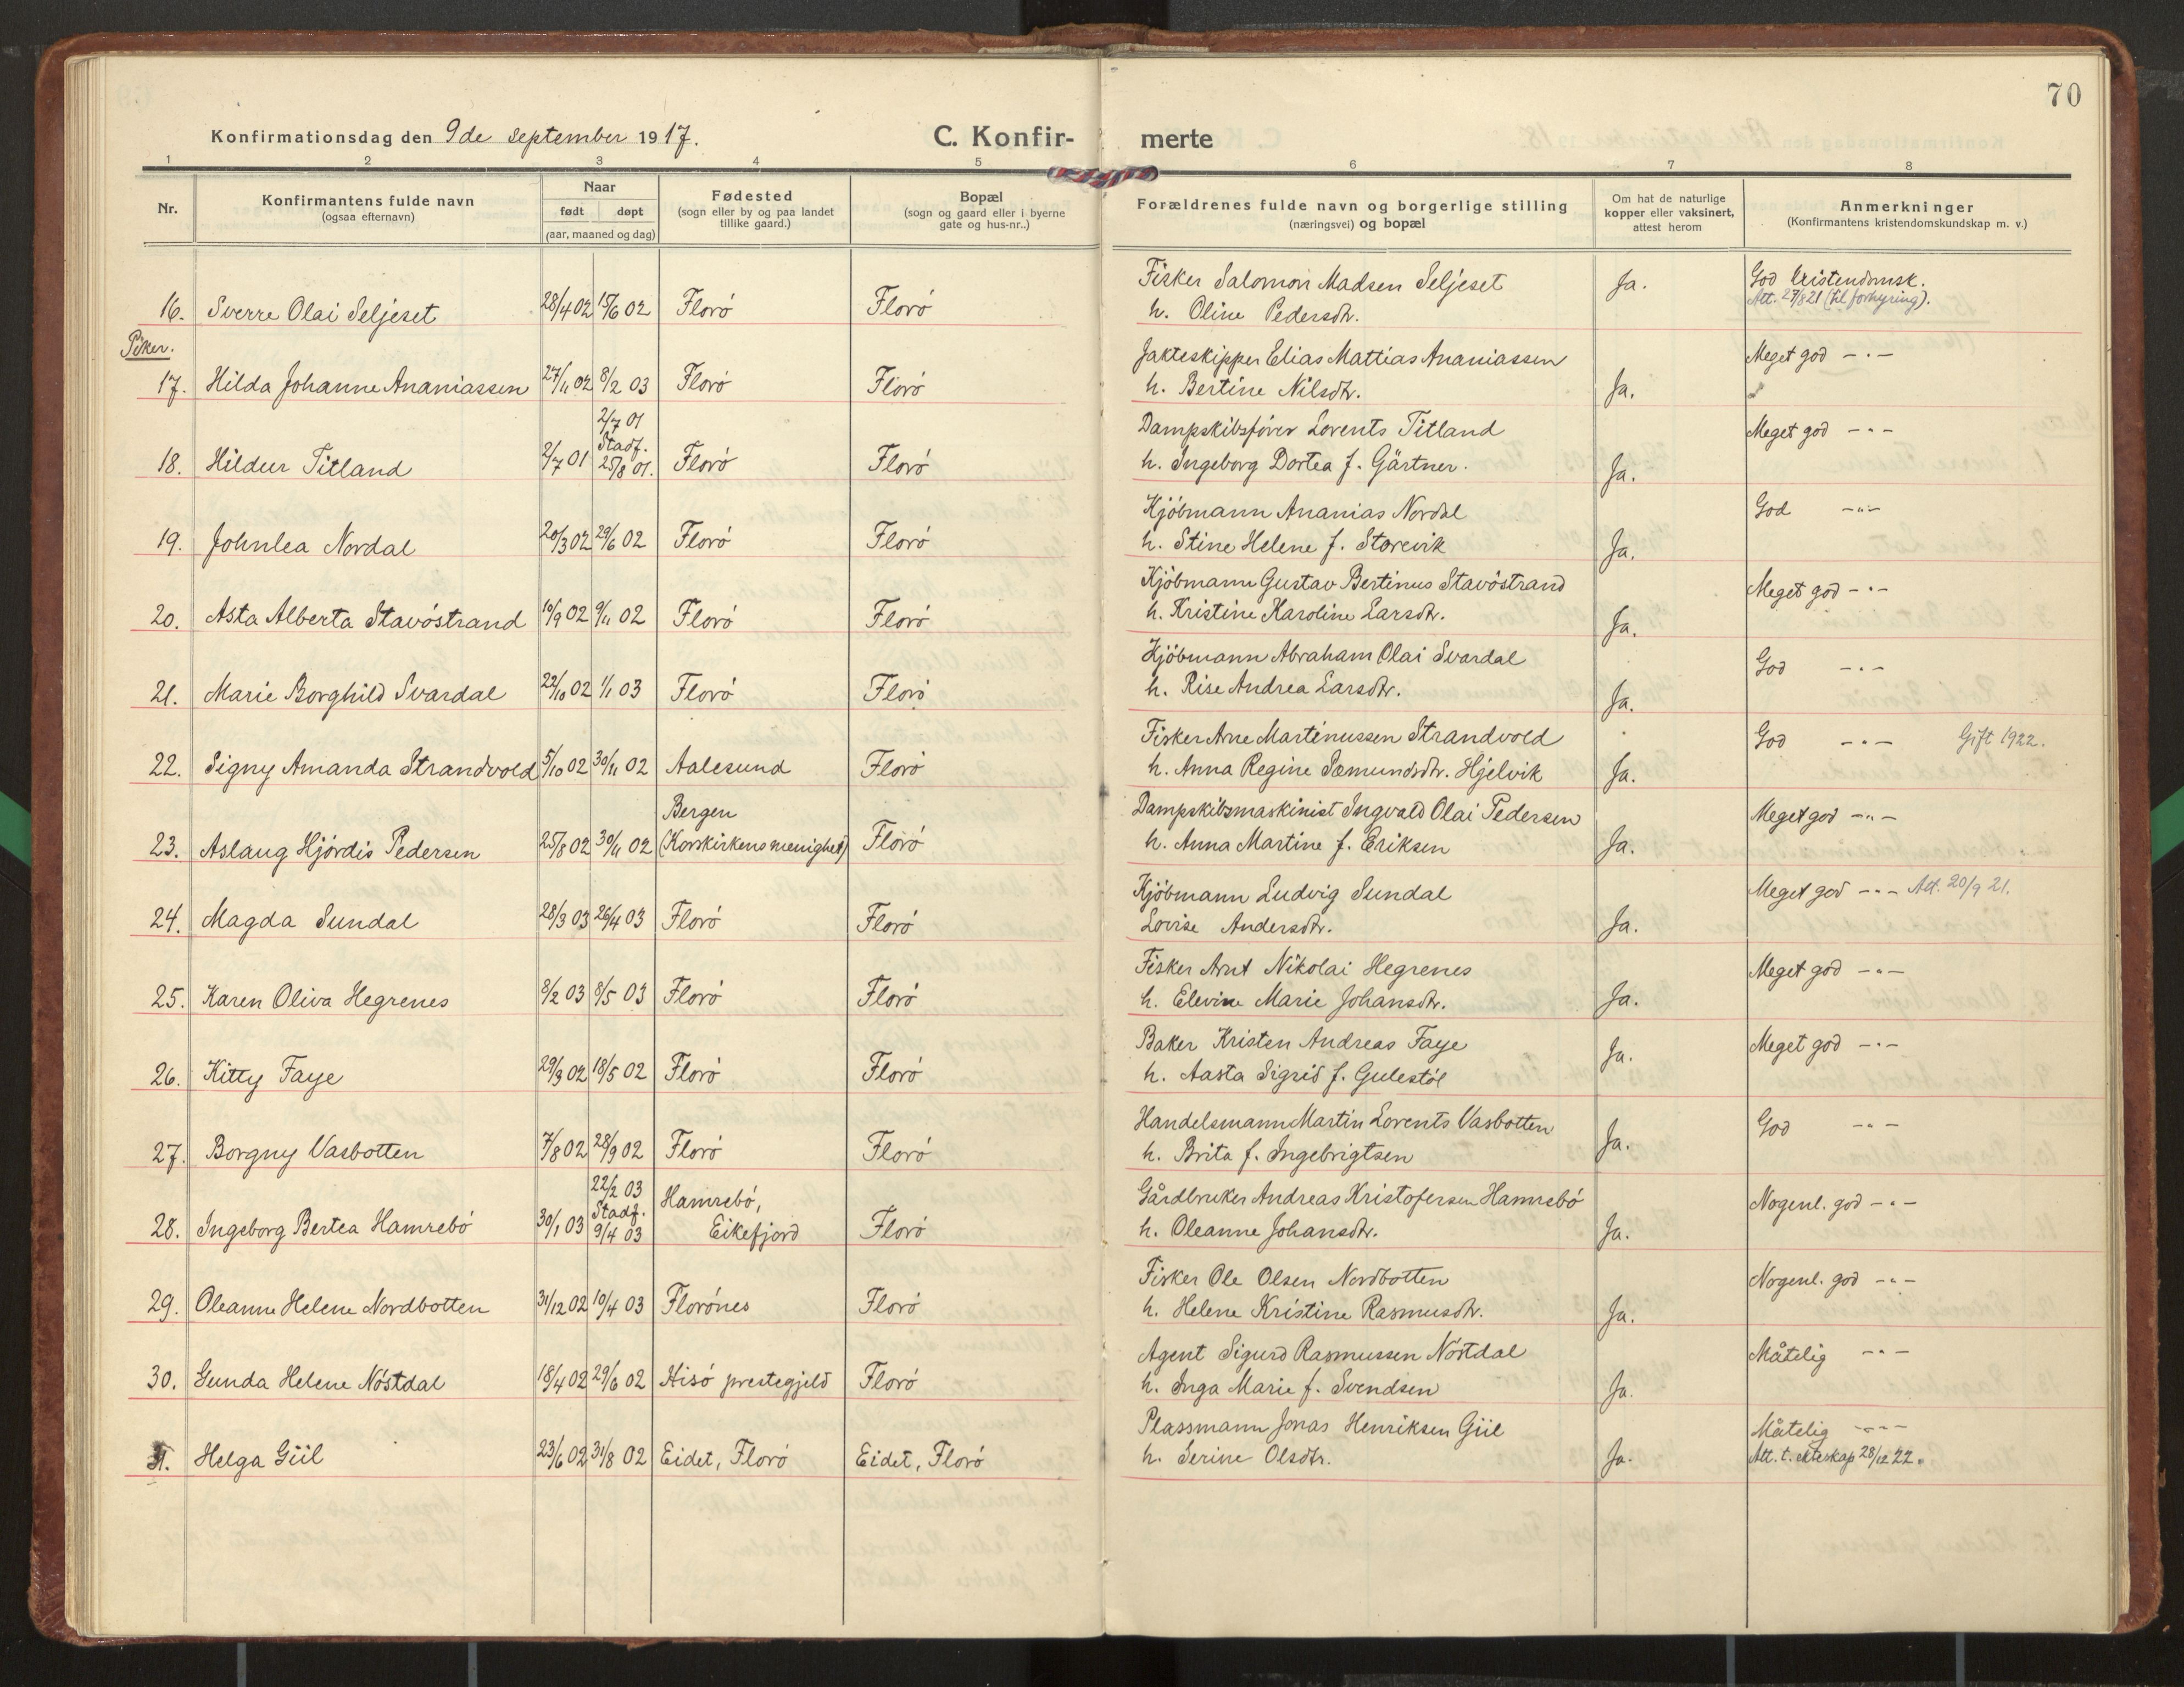 70
Konfirmationsdag den 9de september 1917.
C. Konfir-
merte
1 2 3 4 5 6 7 8
Nr.
Konfirmantens fulde navn
(ogsaa efternavn)
Naar
født døpt
(aar, maaned og dag)
Fødested
(sogn eller by og paa landet
tillike gaard.)
Bopæl
(sogn og gaard eller i byerne
gate og hus-nr..)
Forældrenes fulde navn og borgerlige stilling
(næringsvei) og bopæl
Om hat de naturlige
kopper eller vaksinert,
attest herom
Anmerkninger
(Konfirmantens kristendomskundskap m. v.)
Fisker Salomon Madsen Seljeset Ja. God Kristendomsk.
Att. 27/8 21 (til forhyring).
16. Sverre Olai Seljeset 28/4 02 15/6 02 Florö Florö h. Oline Pedersdtr.
Piker.
Jakteskipper Elias Mattias Ananiassen Meget god -"-
17. Hilda Johanne Ananiassen 27/11 02 8/2 03 Florö Florö h. Bertine Nilsdtr. Ja.
2/7 01
Stadf.
Dampskibsförer Lorents Titland Meget god -"-
18. Hildur Titland 2/7 01 25/8 01. Florö Florö h. Ingeborg Dortea f. Gärtner. Ja.
Kjöbmann Ananias Nordal God -"-
19. Johnlea Nordal 20/3 02 29/6 02 Florö Florö h. Stine Helene f. Storevik Ja.
Kjöbmann Gustav Bertinus Stavöstrand Meget god -"-
20. Asta Alberta Stavöstrand 10/9 02 9/11 02 Florö Florö h. Kristine Karoline Larsdtr. Ja.
Kjöbmann Abraham Olai Svardal God -"-
21. Marie Borghild Svardal 22/10 02 1/1 03 Florö Florö h. Rise Andrea Larsdtr. Ja.
Fisker Arne Martinussen Strandvold God -"- Gift 1922.
22. Signy Amanda Strandvold 5/10 02 30/11 02 Aalesund Florö h. Anna Regine Sæmundsdtr. Hjelvik Ja.
Bergen Dampskibsmaskinist Ingvald Olai Pedersen Meget god -"-
23. Aslaug Hjördis Pedersen 25/8 02 30/11 02 (Korskirkens menighet) Florö h. Anna Martine f. Eriksen Ja.
Kjöbmann Ludvig Sundal Meget god -"- Att. 20/9 21.
24. Magda Sundal 28/3 03 26/4 03 Florö Florö Lovise Andersdtr. Ja.
Fisker Arnt Nikolai Hegrenes Meget god -"-
25. Karen Oliva Hegrenes 8/2 03 8/5 03 Florö Florö h. Elevine Marie Johansdtr. Ja.
Baker Kristen Andreas Faye Ja. Meget god -"-
26. Kitty Faye 29/3 02 18/5 02 Florö Florö h. Aasta Sigrid f. Gulestöl
Handelsmann Martin Lorents Vasbotten God -"-
27. Borgny Vasbotten 7/8 02 28/9 02 Florö Florö h. Brita f. Ingebrigtsen Ja.
22/2 03
Stadf. Hamrebö, Gårdbruker Andreas Kristofersen Hamrebö Nogenl. god -"-
28. Ingeborg Bertea Hamrebö 30/1 03 9/4 03 Eikefjord Florö h. Oleanne Johansdtr. Ja.
Fisker Ole Olsen Nordbotten Nogenl. god -"-
29. Oleanne Helene Nordbotten 31/12 02 10/4 03 Florönes Florö h. Helene Kristine Rasmusdtr. Ja.
Agent Sigurd Rasmussen Nöstdal Måtelig -"-
30. Gunda Helene Nöstdal 18/4 02 29/6 02 Hisö prestegjeld Florö h. Inga Marie f. Svendsen Ja.
Plassmann Jonas Henriksen Güil Måtelig -"-
31. Helga Güil 23/6 02 31/8 02 Eidet, Florö Eidet, Florö h. Serine Olsdtr. Ja. Att. t. ekteskap 28/12 22.